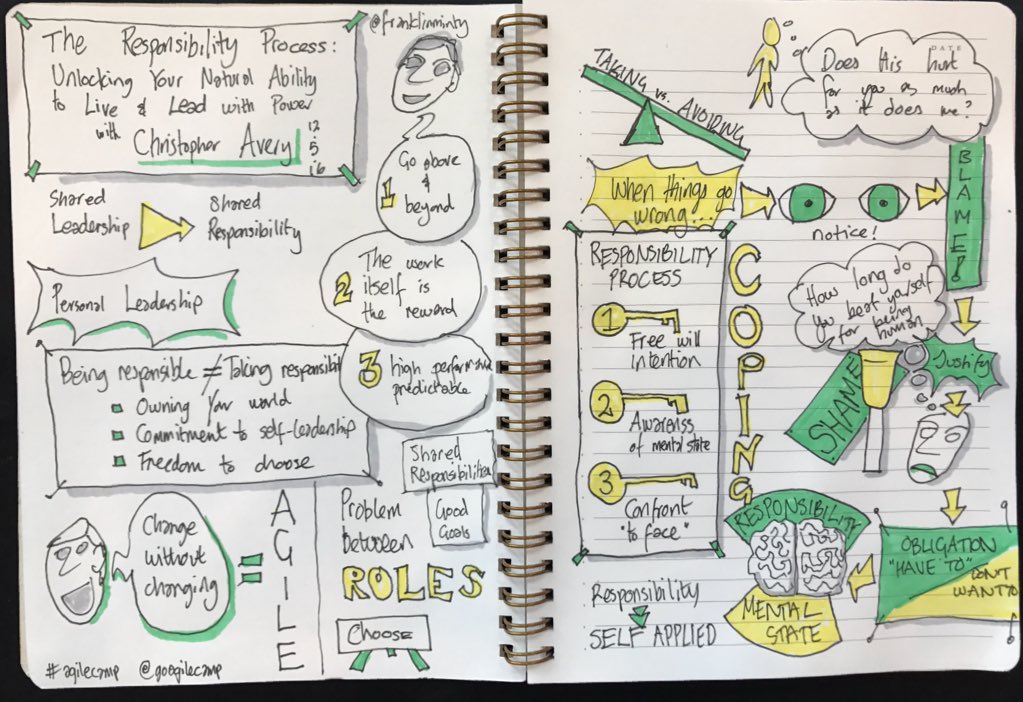 The Responsibility Process:
Unlocking Your Natural Ability
to Live & Lead with Power
with Christopher Avery
12
5
16
@franklinminty
Shared
Leadership
Shared
Responsibility
1
Go above
&
beyond
2
The work
itself is
the reward
3
high performance
predictable
Personal Leadership
Being responsible ≠ Taking responsibil
Owning your world
Commitment to self-leadership
Freedom to choose
Change
without
changing
=
AGILE
Shared
Responsibilities
Problem
between
Good
Goals
ROLES
Choose
#agilecamp @goagilecamp
TAKING vs. AVOIDING
DATE
Does this hurt
for you as much
as it does me?
When things go
wrong....
notice!
BLAME!
RESPONSIBILITY
PROCESS
1
Free will
intention
2
Awarenss
of mental state
3
Confront
"to face"
COPING
How long do
you beat yourself
for being
human
Justify
SHAME
RESPONSIBILITY
MENTAL
STATE
OBLIGATION
"HAVE TO"
DON'T
WANT TO
Responsibility
SELF APPLIED